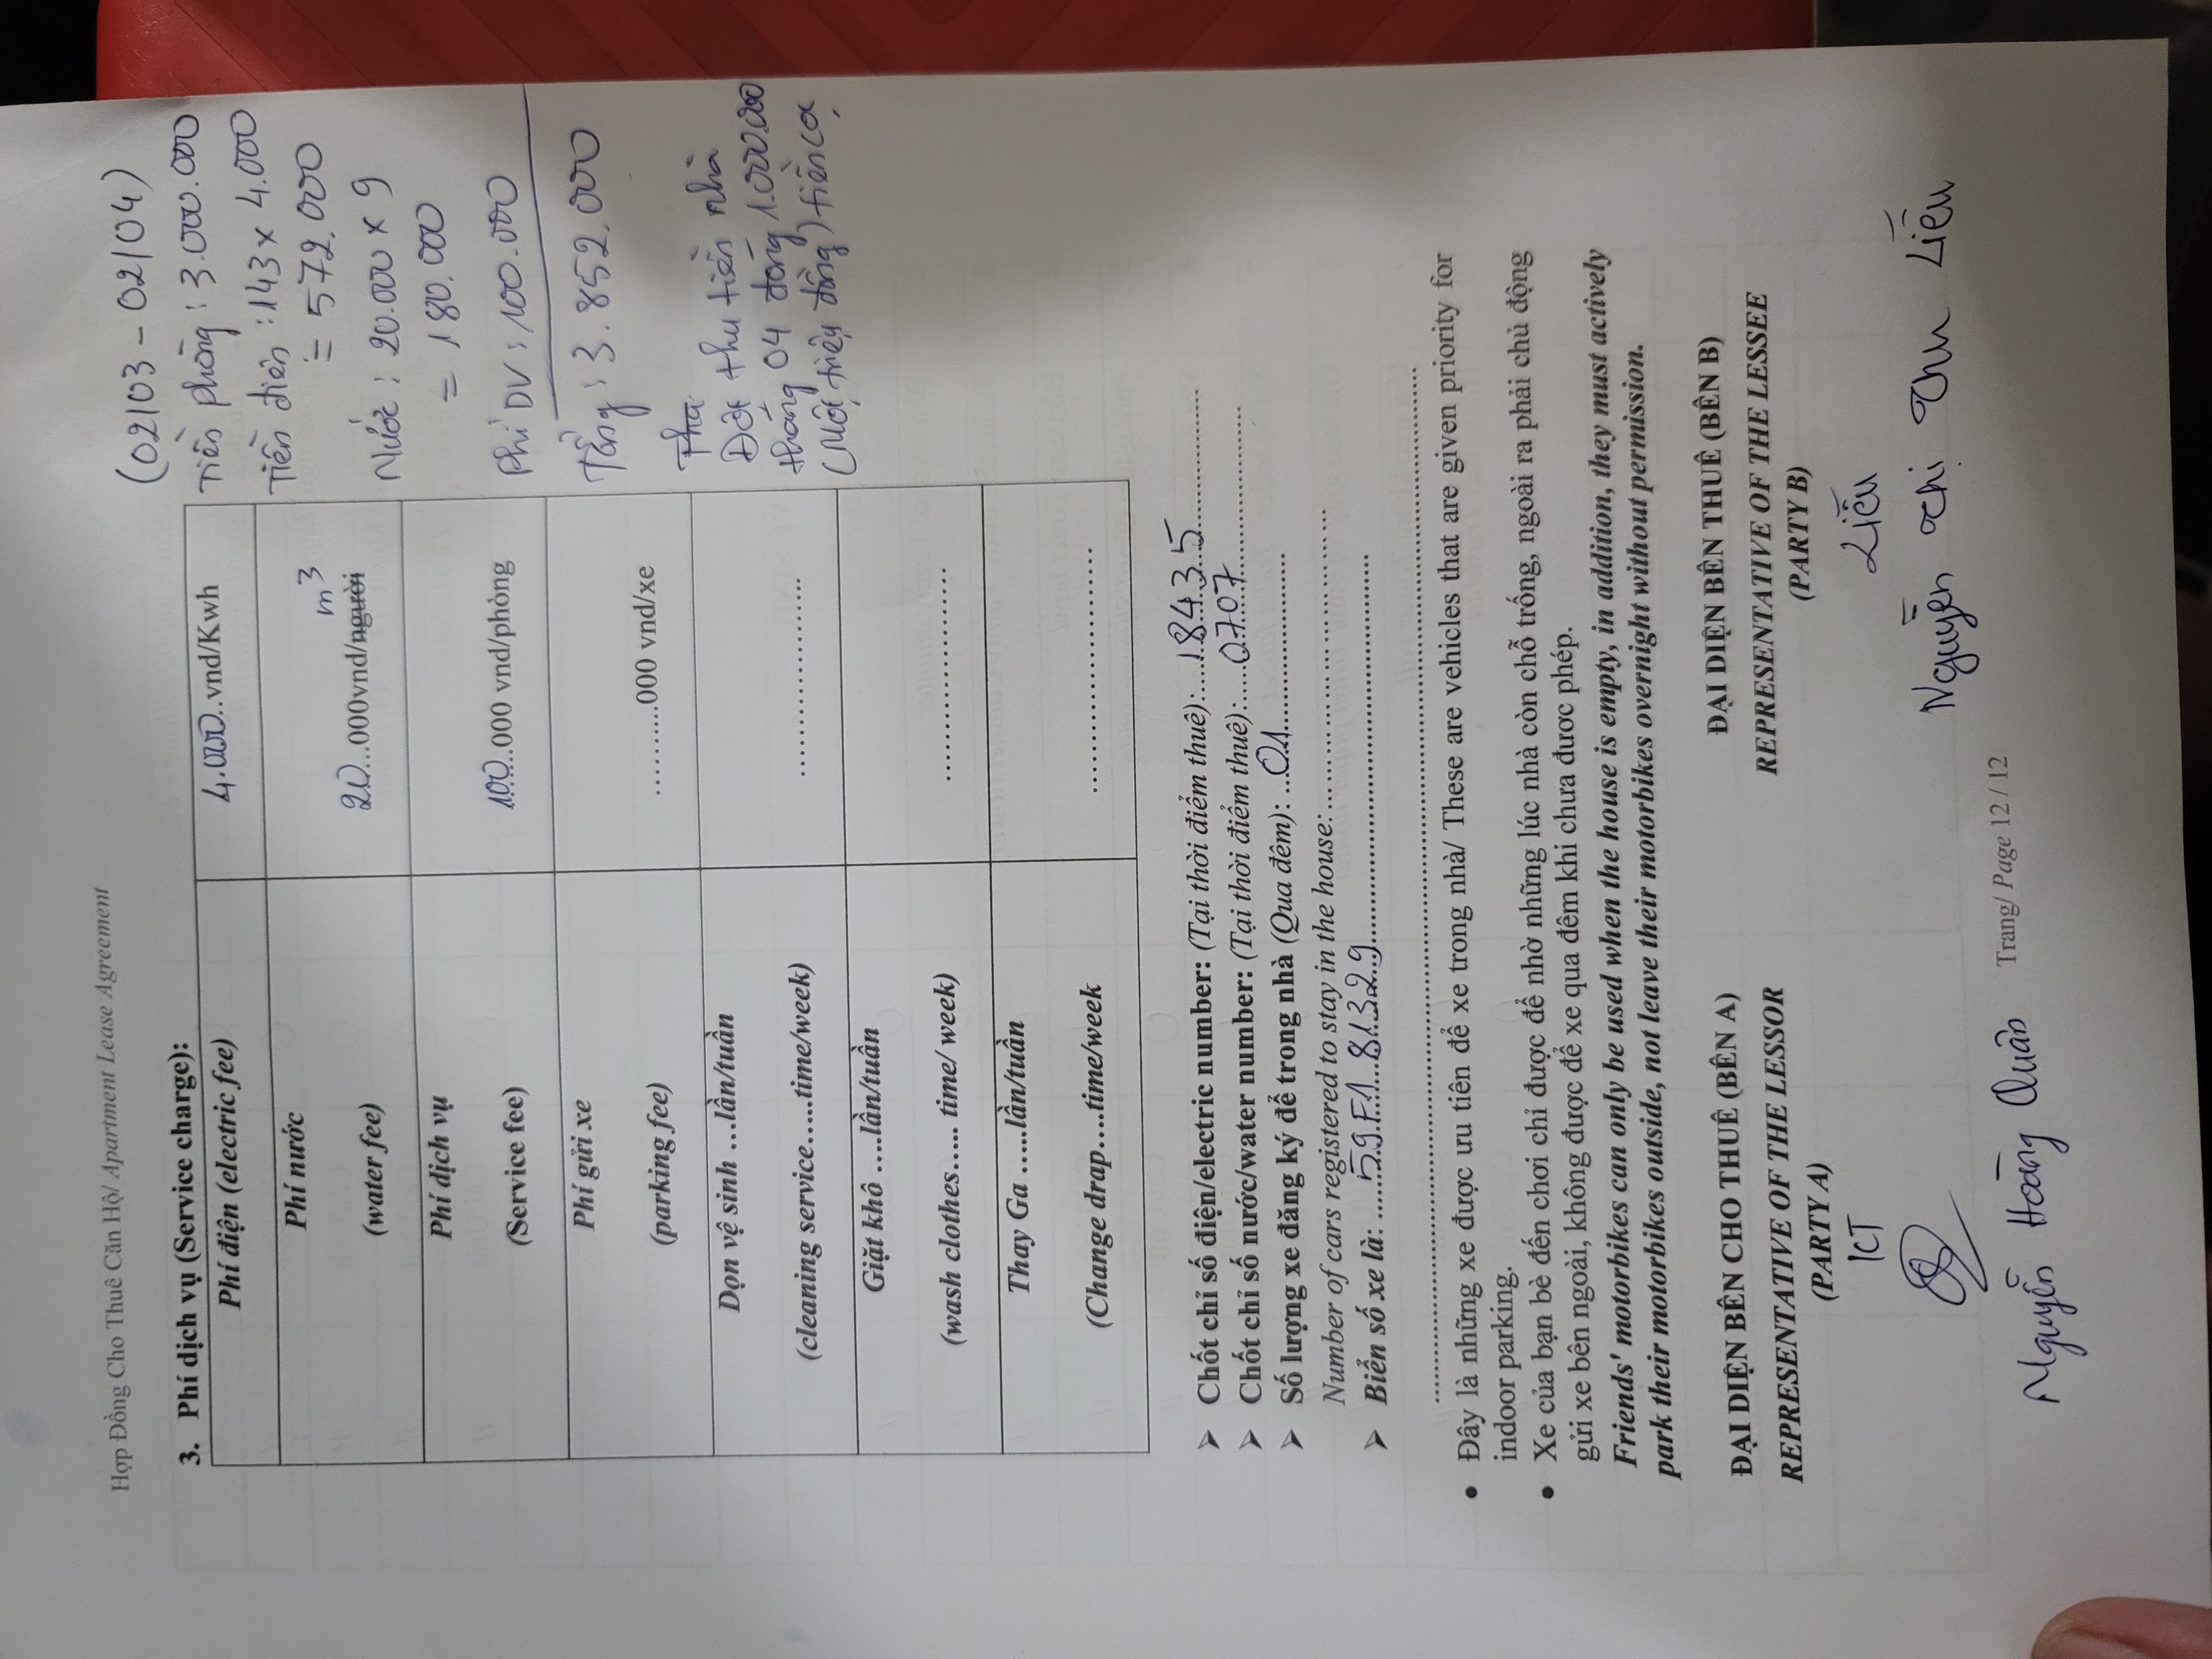 Hợp Đồng Cho Thuê Căn Hộ/ Apartment Lease Agreement
3. Phí dịch vụ (Service charge):
Phí điện (electric fee) 4.000..vnd/Kwh
Phí nước
(water fee) 20...000vnd/người m3
Phí dịch vụ
(Service fee) 100....000 vnd/phòng
Phí gửi xe
(parking fee) ..........000 vnd/xe
Dọn vệ sinh ...lần/tuần
(cleaning service.....time/week) ........................
Giặt khô ....lần/tuần
(wash clothes..... time/ week) ........................
Thay Ga .....lần/tuần
(Change drap....time/week ........................
(02/03 - 02/04)
Tiền phòng : 3.000.000
Tiền điện : 143 x 4.000
= 572.000
Nước : 20.000 x 9
= 180.000
Phí DV : 100.000
Tổng : 3.852.000
Thu
Đợt thu tiền nhà
tháng 04 đóng 1.000.000
(Một triệu đồng) tiền cọ
➤ Chốt chỉ số điện/electric number: (Tại thời điểm thuê):....18435....................
➤ Chốt chỉ số nước/water number: (Tại thời điểm thuê):.....0707....................
➤ Số lượng xe đăng ký để trong nhà (Qua đêm): ...01....................
Number of cars registered to stay in the house:........................................
➤ Biển số xe là: ......59F1...81329........................................
................................................................................
• Đây là những xe được ưu tiên để xe trong nhà/ These are vehicles that are given priority for
indoor parking.
• Xe của bạn bè đến chơi chỉ được để nhờ những lúc nhà còn chỗ trống, ngoài ra phải chủ động
gửi xe bên ngoài, không được để xe qua đêm khi chưa được phép.
Friends' motorbikes can only be used when the house is empty, in addition, they must actively
park their motorbikes outside, not leave their motorbikes overnight without permission.
ĐẠI DIỆN BÊN CHO THUÊ (BÊN A)
REPRESENTATIVE OF THE LESSOR
(PARTY A)
KT
Nguyễn Hoàng Quân
ĐẠI DIỆN BÊN THUÊ (BÊN B)
REPRESENTATIVE OF THE LESSEE
(PARTY B)
Liễu
Nguyễn Thị Thu Liễu
Trang/ Page 12 / 12